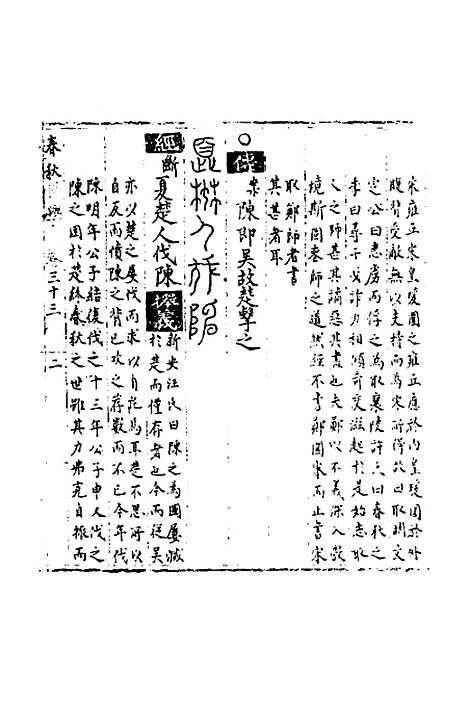 宋雍丘宋皇瑗圍之雍丘應於內皇瑗圍於外
腹背受敵無以支持而為宋所得故曰取胡文
定公曰悉虜而俘之為取襄陵許氏曰春秋之
季日尋干戈詐力相傾奇變滋起於是始志取
人之師甚其譎惡其盡也夫鄭以不義深入敵
境斯固喪師之道然經不書鄭圍宋而止書宋
取鄭師者書
其甚者耳
○傳
陳即吳故楚擊之
夏楚人伐陳
經
斷 夏楚人伐陳
新安汪氏曰陳之為國屢滅
於楚而僅存者也今而從吳
亦以楚之屢伐而求以自託焉耳楚不思所以
自反而憤陳之背已攻之荐數而不已今年伐
陳明年公子結復伐之十三年公子申人伐之
陳之困於楚終春秋之世雖其力弗克自振而
春秋 卷三十三 二